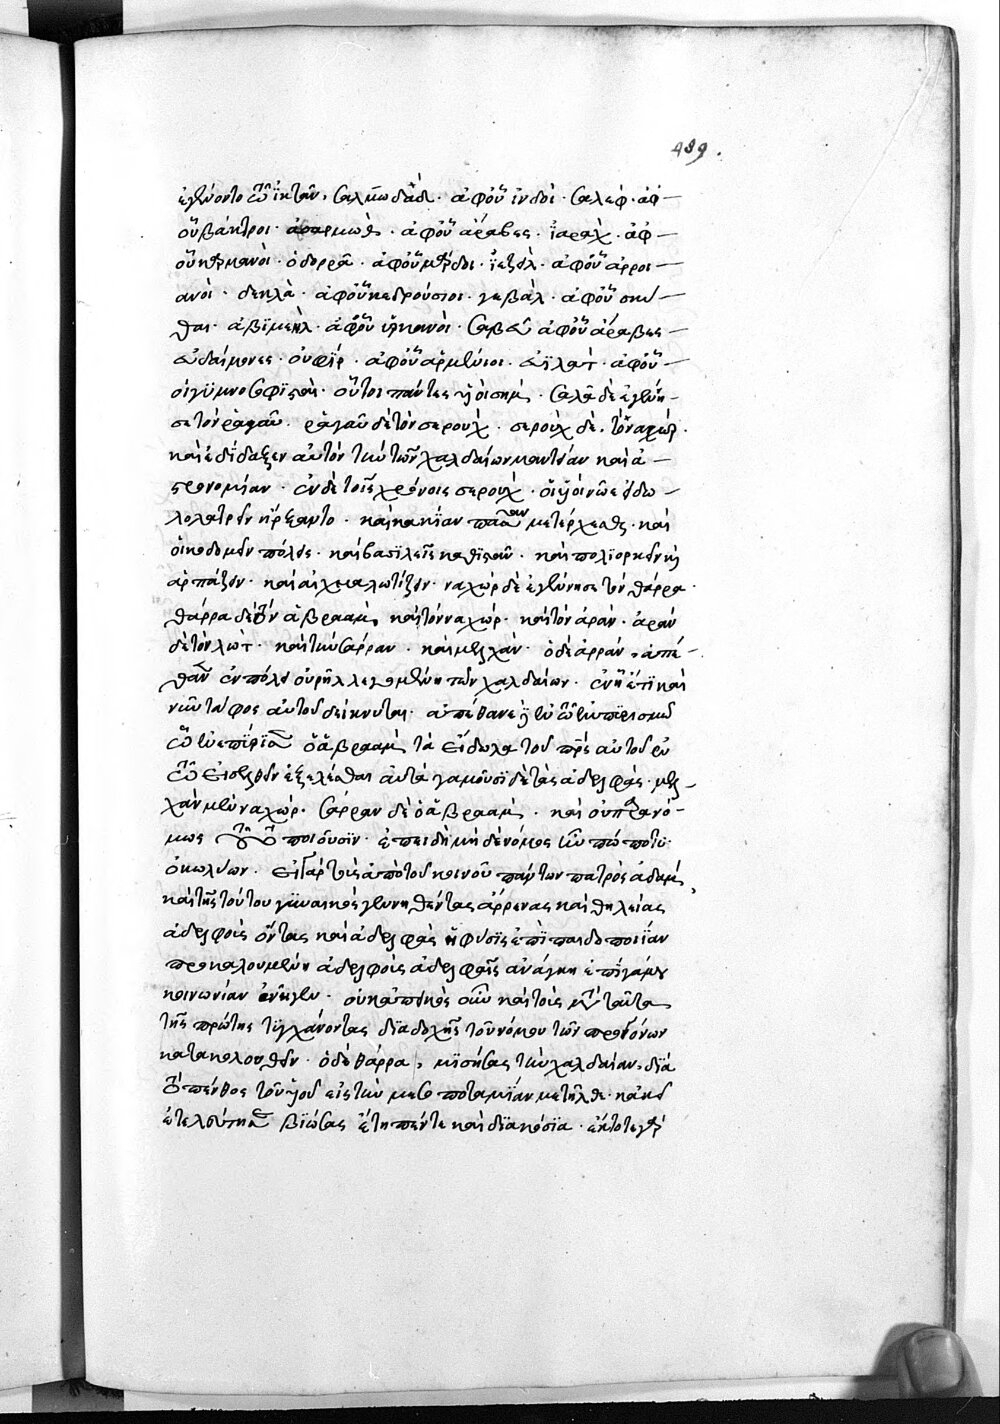 489.
ἐγένοντο τῷ ἰεκτὰν. σαλμωδάδ. ἀφ' οὗ ἰνδοὶ. σαλέφ. ἀφ'
οὗ βάκτροι. ἀραρμὼθ. ἀφ' οὗ ἄραβες. ἰαρὰχ. ἀφ'
οὗ κερμανοὶ. ὀδορρᾶ. ἀφ' οὗ μερδοι. ἰεζὲλ. ἀφ' οὗ ἀρροι
ανοὶ. δεκλὰ. ἀφ' οὗ κεδρούσιοι. γεβὰλ. ἀφ' οὗ σκύ
θαι. ἀβιμεὴλ. ἀφ' οὗ ὑρκανοὶ. σαβεῦ ἀφ' οὗ ἄραβες
εὐδαίμονες. οὐφὶρ. ἀφ' οὗ ἀρμένιοι. εὐϊλὰτ. ἀφ' οὗ
οἱ γυμνοσοφισταὶ. οὗτοι πάντες υἱοὶ σήμ. σαλὰ δὲ ἐγέννη
σε τὸν ῥαγαῦ. ῥαγαῦ δὲ τὸν σερούχ. σεροὺχ δὲ τὸν ναχώρ.
καὶ ἐδίδαξεν αὐτὸν τὴν τῶν χαλδαίων μαντείαν καὶ ἀ
στρονομίαν. ἐν δὲ τοῖς χρόνοις σεροὺχ. οἱ υἱοὶ νῶε εἰδω
λολατρεῖν ἤρξαντο. καὶ κακίαν πᾶσαν μετέρχεσθαι. καὶ
οἰκοδομεῖν πόλεις. καὶ βασιλεῖς καθιστᾶν. καὶ πολιορκεῖν καὶ
ἁρπάζειν. καὶ αἰχμαλωτίζειν. ναχὼρ δὲ ἐγέννησε τὸν θάρρα.
θάρρα δὲ τὸν ἀβραὰμ, καὶ τὸν ναχώρ. καὶ τὸν ἀράν. ἀρὰν
δὲ τὸν λὼτ. καὶ τὴν σάρραν. καὶ μελχὰν. ὁ δὲ ἀρρὰν, ἀπέ
θανεν ἐν πόλει οὐρὴλ λεγομένῃ τῶν χαλδαίων. ἐν ᾗ ἔτι καὶ
νῦν τάφος αὐτοῦ δείκνυται. ἀπέθανε γὰρ ἐν τῷ ἐμπρησμῷ
ᾧ ἐνεπύρισεν ὁ ἀβραὰμ τὰ εἴδωλα τοῦ πατρὸς αὐτοῦ ἐν
τῷ εἰσελθεῖν ἐξελέσθαι αὐτά γαμοῦσι δὲ τὰς ἀδελφὰς. μελ
χὰν μὲν ναχώρ. σάρραν δὲ ὁ ἀβραὰμ. καὶ οὐ παρανό
μως τοῦτο ποιοῦσιν. ἐπειδὴ μηδὲ νόμος ἦν πώποτε
ὁ κωλύων. εἰ γὰρ τοὺς ἀπὸ τοῦ κοινοῦ πάντων πατρὸς ἀδὰμ,
καὶ τῆς τούτου γυναικὸς γεννηθέντας ἄρρενας καὶ θηλείας
ἀδελφοὺς ὄντας καὶ ἀδελφὰς ἡ φύσις ἐπὶ παιδοποιΐαν
προκαλουμένη ἀδελφοὺς ἀδελφαῖς ἀνάγκη ἐπὶ γάμου
κοινωνίαν ἐνῆγεν. οὐκ ἀπεικὸς οὖν καὶ τοὺς μετὰ ταῦτα
τῆς πρώτης τυγχάνοντας διαδοχῆς τοῦ νόμου τῶν προγόνων
κατακολουθεῖν. ὁ δὲ θάρρα, μισήσας τὴν χαλδαίαν, διὰ
τὸ πένθος τοῦ υἱοῦ εἰς τὴν μεσοποταμίαν μετῆλθε. κἀκεῖ
ἐτελεύτησε βιώσας ἔτη πέντε καὶ διακόσια. ἔκτοτε γὰρ